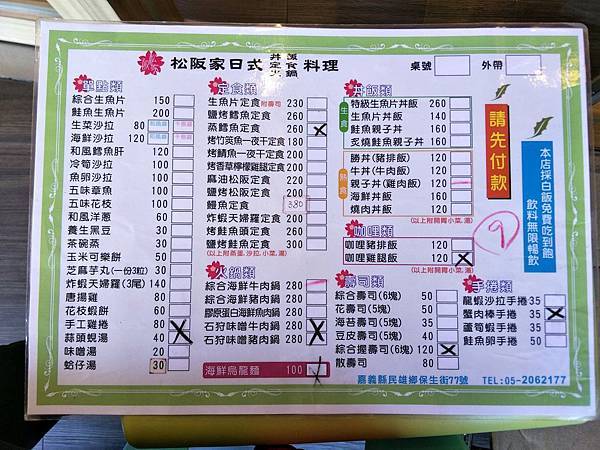 松阪家日式 丼飯 定食 火鍋 料理
桌號
外帶
單點類
綜合生魚片 150
鮭魚生魚片 200
生菜沙拉 80
海鮮沙拉 120
和風鱈魚肝 120
冷筍沙拉 100
魚卵沙拉 100
五味章魚 100
五味花枝 100
和風洋蔥 60
養生黑豆 30
茶碗蒸 30
玉米可樂餅 50
芝麻芋丸(一份3粒) 30
炸蝦天婦羅(3尾) 140
唐揚雞 80
花枝蝦餅 60
手工雞捲 40
蒜頭蜆湯 40
味噌湯 20
蛤仔湯 30
定食類
生魚片定食 附壽司 230
鹽烤鱈魚定食 260
蒸鱈魚定食 260
烤竹筴魚一夜干定食 180
烤鯖魚一夜干定食 180
烤香草檸檬雞腿定食 220
麻油松阪定食 220
鹽烤松阪定食 220
鰻魚定食 380
炸蝦天婦羅定食 220
烤鮭魚頭定食 300
鹽烤鮭魚定食 300
(以上附蒸蛋,沙拉,小菜,湯)
火鍋類
綜合海鮮牛肉鍋 280
綜合海鮮豬肉鍋 280
膠原蛋白海鮮魚肉鍋 280
石狩味噌牛肉鍋 280
石狩味噌豬肉鍋 280
海鮮烏龍麵 100
丼飯類
生食
特級生魚片丼飯 260
生魚片丼飯 140
鮭魚親子丼 260
炙燒鮭魚親子丼 260
熟食
勝丼(豬排飯) 120
牛丼(牛肉飯) 120
親子丼(雞肉飯) 120
海鮮丼飯 160
燒肉丼飯 120
(以上附開胃小菜,湯)
咖哩類
咖哩豬排飯 120
咖哩雞腿飯 120
(以上附開胃小菜,湯)
壽司類
綜合壽司(6塊) 50
花壽司(5塊) 50
海苔壽司(5塊) 50
豆皮壽司(5塊) 40
綜合握壽司(6塊) 120
散壽司 80
手捲類
龍蝦沙拉手捲 35
蟹肉棒手捲 35
蘆筍蝦手捲 35
鮭魚卵手捲 50
請先付款
本店採白飯免費吃到飽
飲料無限暢飲
9
嘉義縣民雄鄉保生街77號 TEL:05-2062177